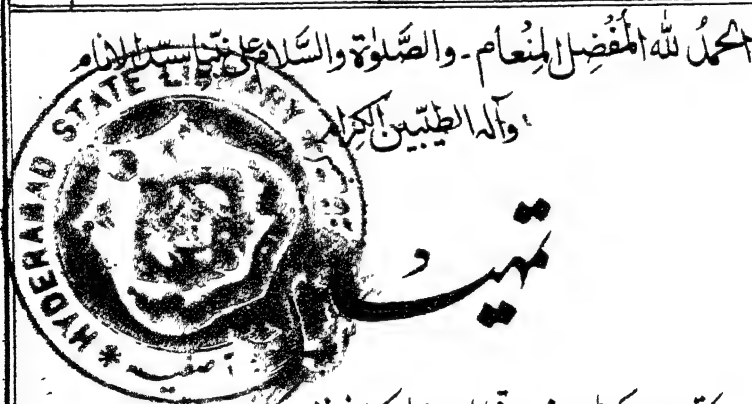 الحمدُ لله المُفضِل المِنعام ۔ والصَّلوٰة والسَّلام علیٰ نبیّنا سیّد الانام
وآلہ الطیّبین الکرام
HYDERABAD STATE LIBRARY
آصفیہ
تمہید